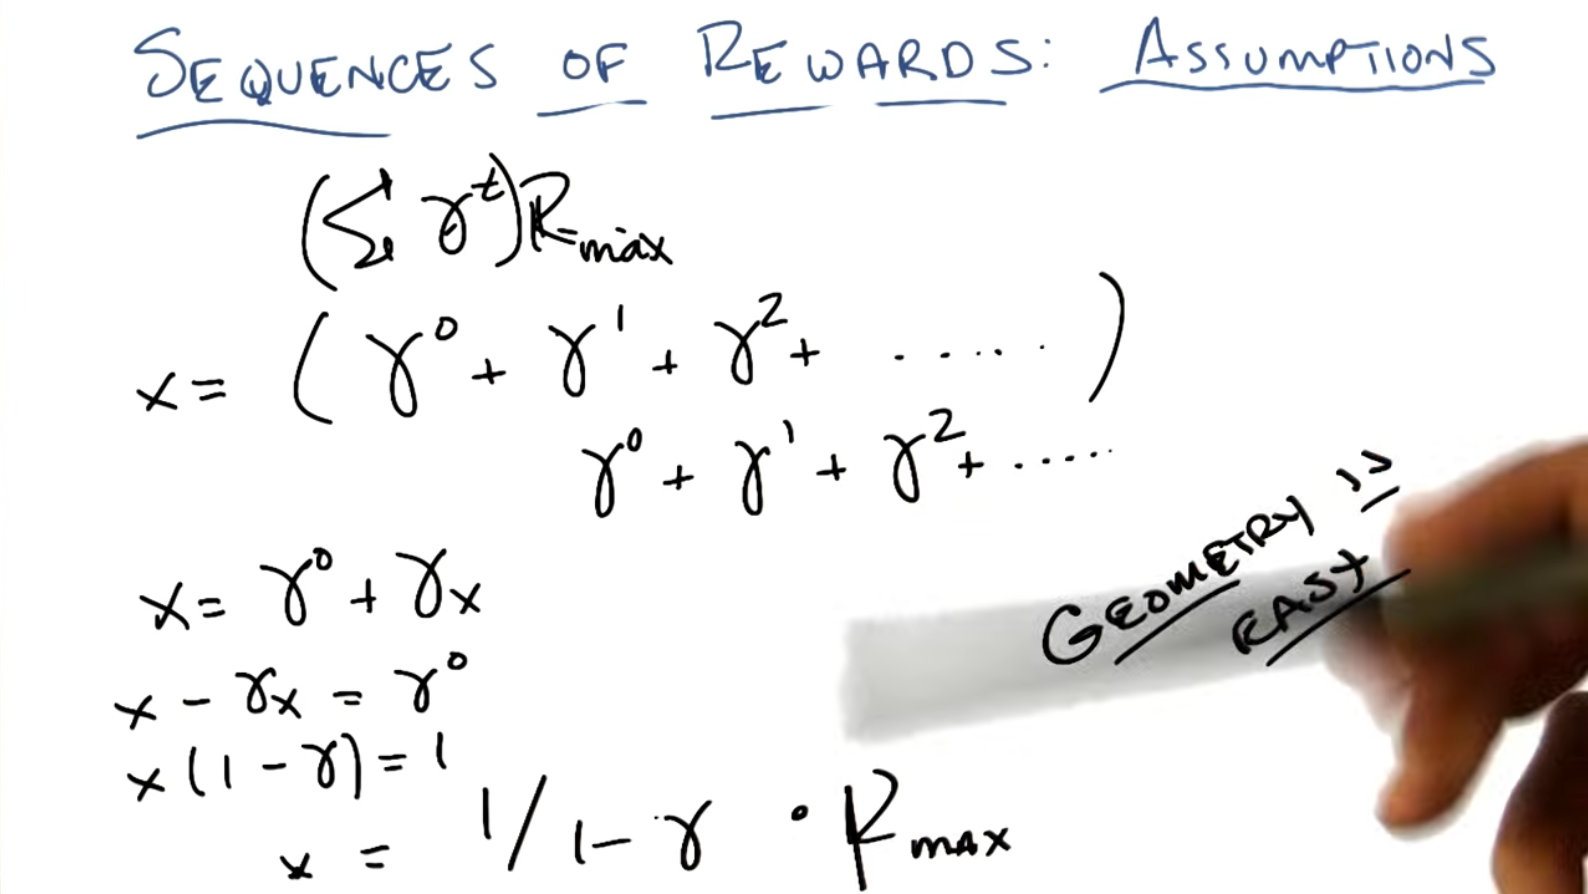 SEQUENCES OF REWARDS: ASSUMPTIONS
(Σ γ^t) R_max
x = ( γ^0 + γ^1 + γ^2 + ...... )
γ^0 + γ^1 + γ^2 + .....
x = γ^0 + γx
x - γx = γ^0
x(1 - γ) = 1
x = 1/1-γ · R_max
GEOMETRY IS
EASY